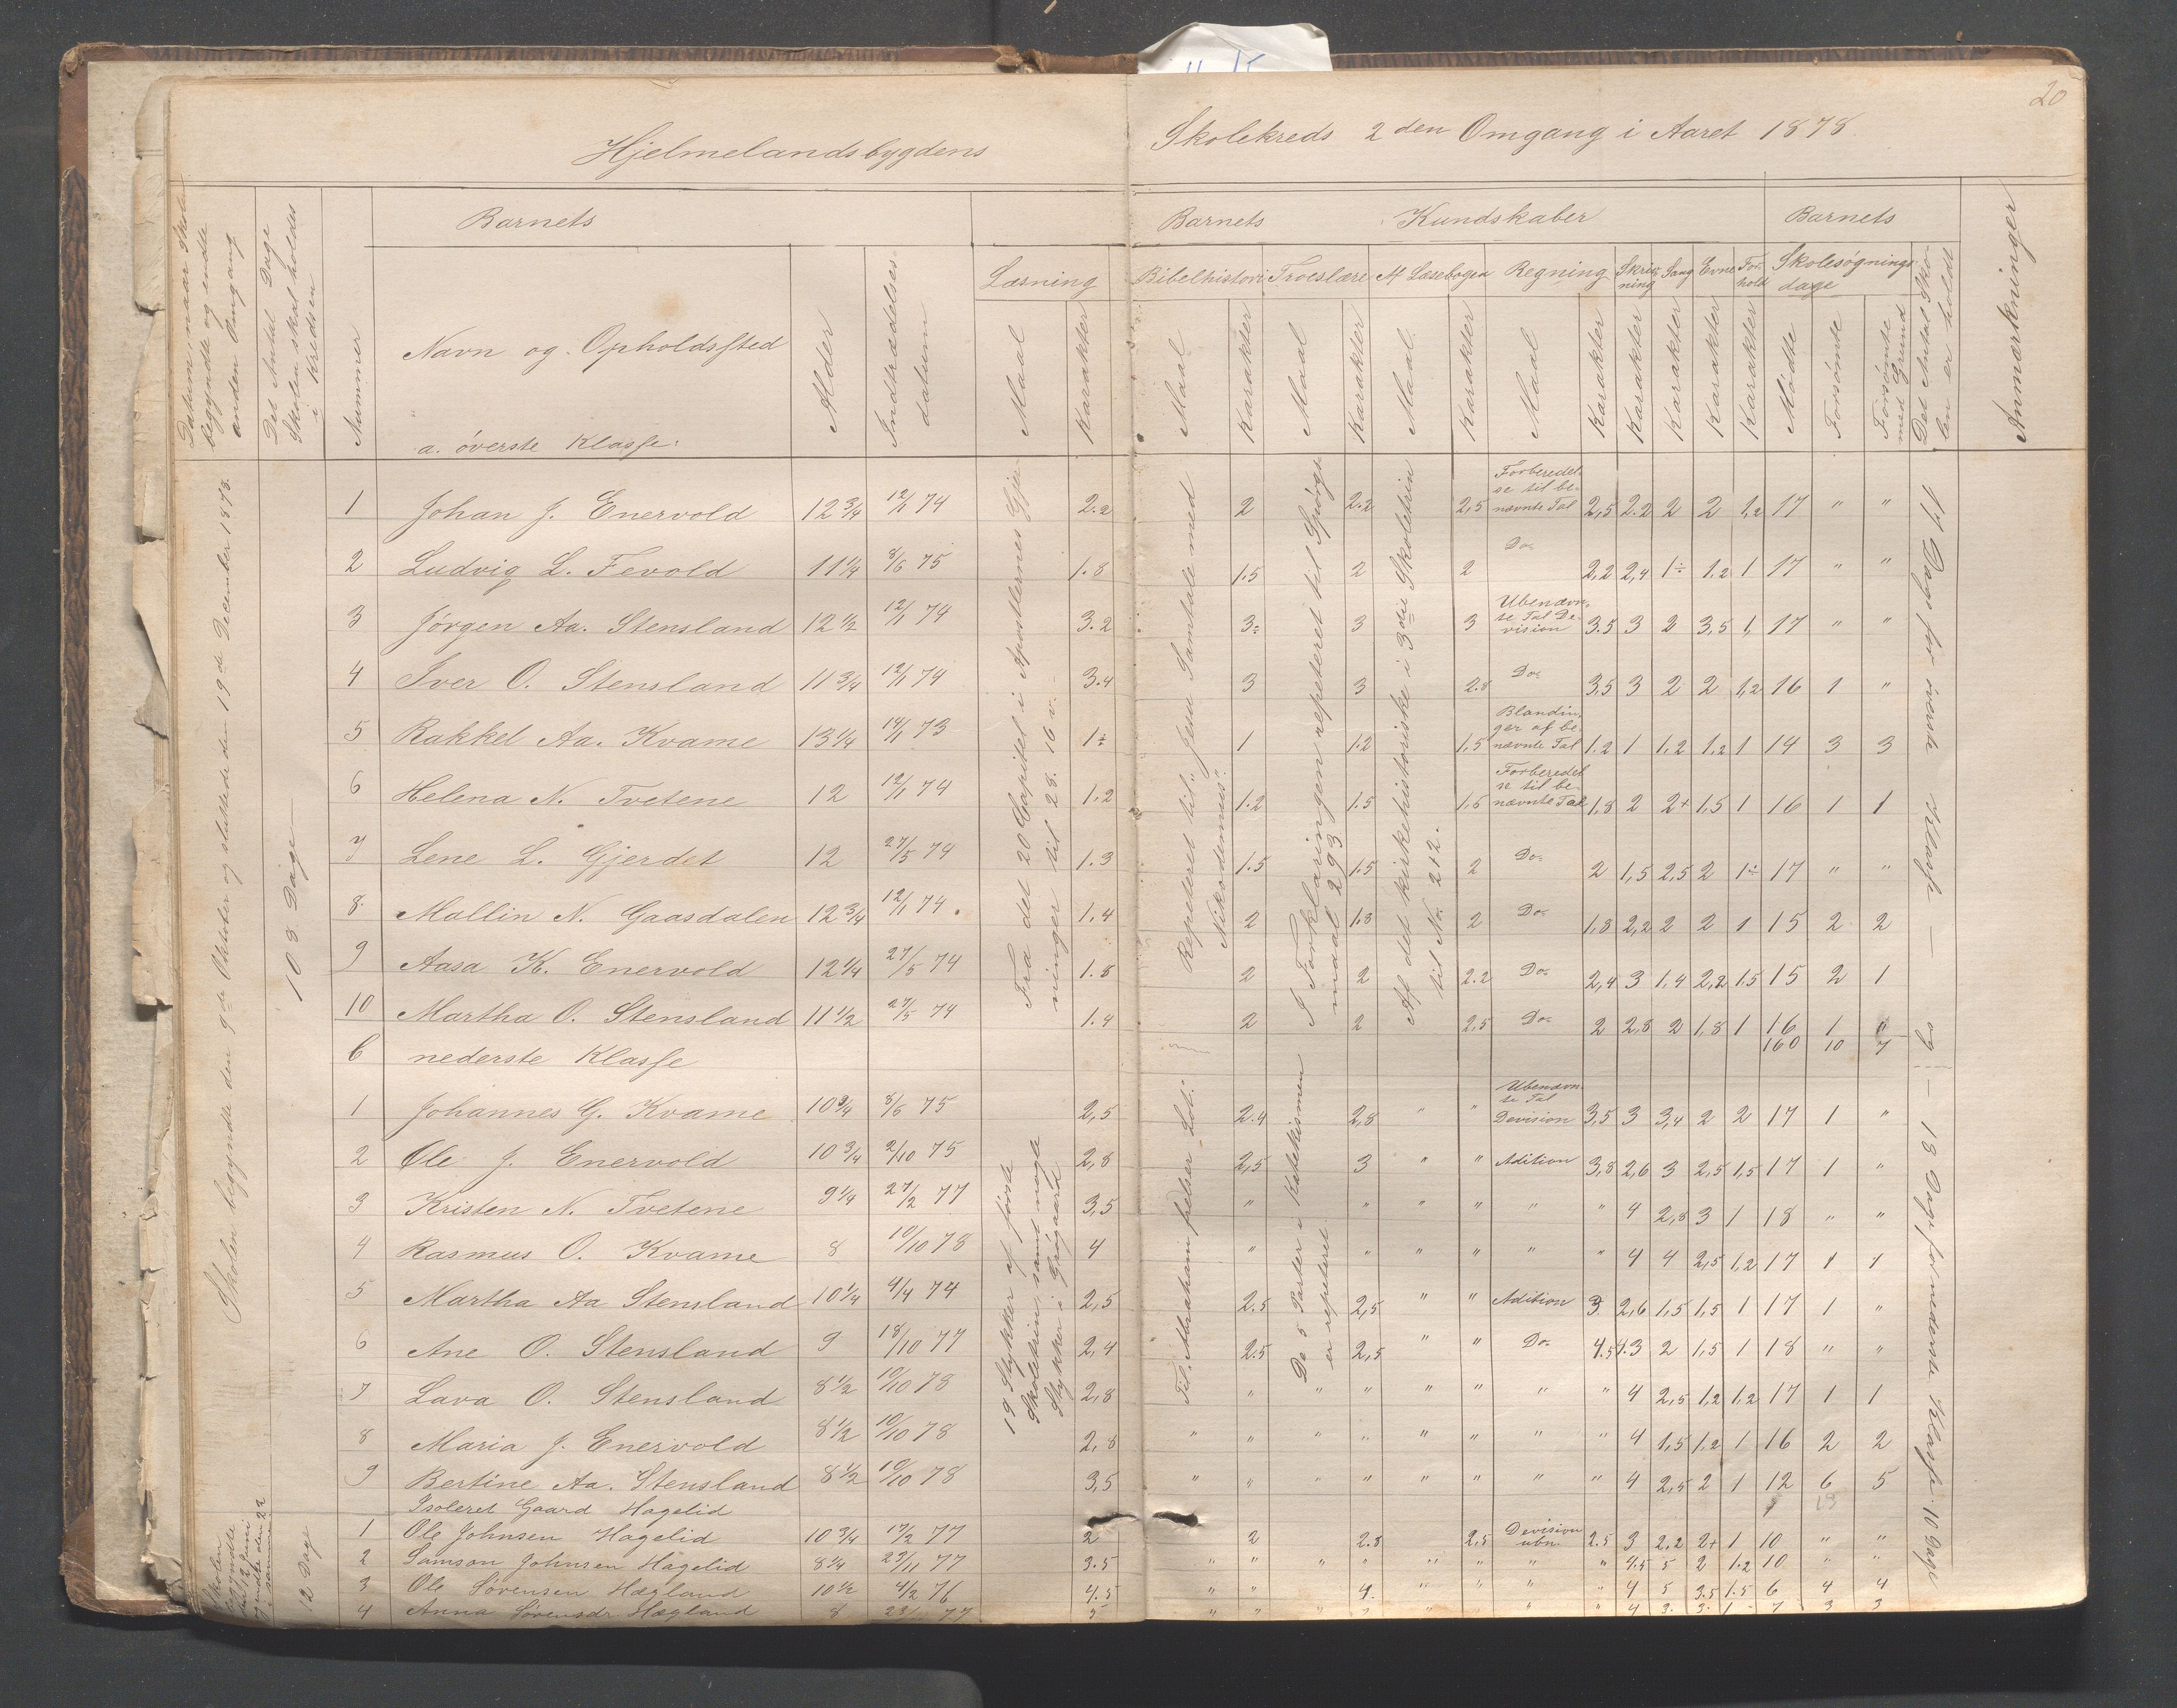 20
Hjelmelandsbygdens Skolekreds 2den Omgang i Aaret 1878
Datum naar Skolen begyndte og endte anden Omgang
Det Antal Dage Skolen skal holdes i Kredsen
Nummer
Barnets
Navn og Opholdssted
Alder
Indtrædelses-datum
Læsning
Maal
Karakter
Barnets Kundskaber
Bibelhistori Troeslære Af Læsebogen Regning Skrivning Sang Evne Forhold
Maal Karakter Maal Karakter Maal Karakter Maal Karakter Karakter Karakter Karakter Karakter
Barnets
Skolesøgnings dage
Mødte Forsømte Forsømte med Grund
Det Antal Skolen er holdt
Anmærkninger
a. øverste Klasse:
Skolen begyndte den 9de Oktober og sluttede den 19de December 1878.
103 Dage
Fra det 20 Kapitel i Apostlernes Gjerninger til 28. 16 v.
Repederet til "Jesu Samtale med Nikodemus".
I Forklaringen repeteret til Spørgsmaal 293
Af det kirkehistoriske i 3die Skoletrin til No. 212.
17 Dage for øverste Klasse — og — 18 Dage for nederste Klasse. 10 Dage
1 Johan J. Enervold 12 3/4 12/1 74 2.2 2 2.2 2,5 Forberedelse til benævnte Tal 2,5 2.2 2 2 1,2 17 " "
2 Ludvig L. Fevold 11 1/4 8/6 75 1.8 1.5 2 2 Do. 2,2 2,4 1÷ 1,2 1 17 " "
3 Jørgen Aa. Stensland 12 1/2 12/1 74 3.2 3÷ 3 3 Ubenævnte Tal Devision 3.5 3 2 3,5 1, 17 " "
4 Iver O. Stensland 11 3/4 12/1 74 3.4 3 3 2.8 Do. 3,5 3 2 2 1,2 16 1 "
5 Rakkel Aa. Kvame 13 1/4 14/1 73 1÷ 1 1.2 1.5 Blandinger af benævnte Tal 1.2 1 1,2 1,2 1 14 3 3
6 Helena N. Tvetene 12 12/1 74 1.2 1.2 1.5 1.5 Forberedelse til benævnte Tal 1,8 2 2+ 1,5 1 16 1 1
7 Lene L. Gjerdet 12 27/5 74 1.3 1.5 1.5 2 Do. 2 1,5 2,5 2 1÷ 17 " "
8. Mallin N. Gaasdalen 12 3/4 12/1 74. 1,4 2 1.8 2 Do. 1,8 2,2 2 2 1 15 2 2
9 Aasa K. Enervold 12 1/4 27/5 74 1.8 2 2 2.2 Do. 2,4 3 1,4 2,2 1.5 15 2 1
10 Martha O. Stensland 11 1/2 27/5 74 1.4 2 2 2,5 Do. 2 2,8 2 1,8 1 16 1
160 10 7
b nederste Klasse
19 Stykker af første Skoletrin, samt nogle Stykker i Grøgaard
Til "Abraham frelser Lot".
De 5 Parter i Katekismen er repeteret.
1 Johannes G. Kvame 10 3/4 8/6 75 2,5 2.4 2,8 " " Ubenævnte Tal Devision 3,5 3 3,4 2 2 17 1 "
2 Ole J. Enervold 10 3/4 2/10 75 2,8 2,5 3 " " Adition 3,8 2,6 3 2,5 1,5 17 1 "
3 Kristen N. Tvetene 9 1/4 27/2 77 3,5 " " " " " " 4 2,8 3 1 18 " "
4 Rasmus O. Kvame 8 10/10 78 4 " " " " " " 4 4 2,5 1,2 17 1 1
5 Martha Aa Stensland 10 1/4 4/4 74 2,5 2.5 2,5 " " Adition 3. 2,6 1,5 1,5 1 17 1 "
6 Ane O. Stensland 9 18/10 77 2,4 2.5 2,5 " " Do. 4.5 4.3 2 1,5 1 18 " "
7 Lava O. Stensland 8 1/2 10/10 78 2,8 " " " " " " 4 2,5 1,2 1,2 17 1 1
8 Maria J. Enervold 8 1/2 10/10 78 2,8 " " " " " " " 4 1,5 1,2 1 16 2 2
9 Bertine Aa. Stensland 8 1/2 10/10 78 3,5 " " " " " " " 4 2,5 2 1 12 6 5
Isoleret Gaard Hagelid
12 Dage
1 Ole Johnsen Hagelid 10 3/4 17/2 77 2 2 2.8 2,5 Devision ubn. 2.5 3 2.2 2+ 1 10 " "
2 Samson Johnsen Hagelid 8 1/4 23/11 77 3.5 " " " " " " " " 4.5 5 2 1.2 10 " "
3 Ole Sørensen Hægland 10 1/2 4/2 76 4.5 " " 4. " " " " 4 5 3.5 1.5 6 4 4
4 Anna Sørensdr Hægland 8 77 5 " " " " " " " " 4 3. 3. 1 - 7 3 3